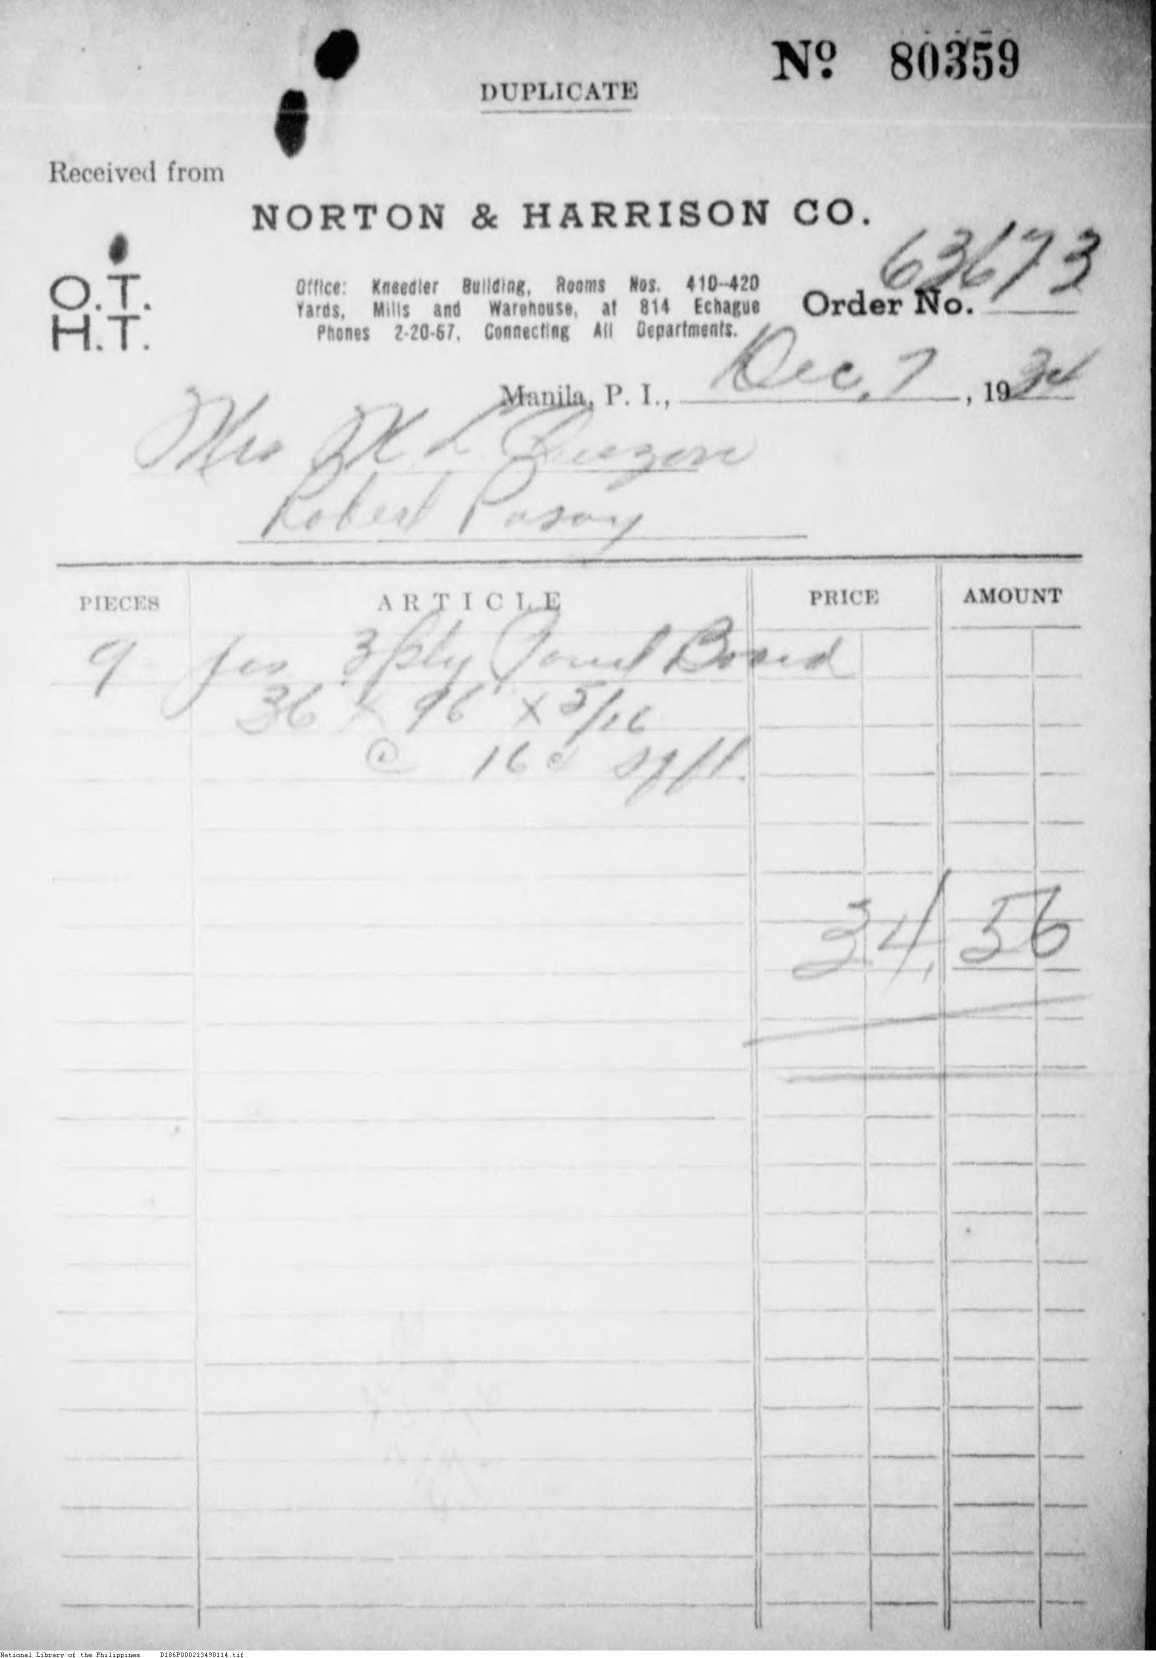 Nº 80359
DUPLICATE
Received from
NORTON & HARRISON CO.
O.T.
H.T.
Office: Kneedler Building, Rooms Nos. 410-420
Yards, Mills and Warehouse, at 814 Echague
Phones 2-20-67, Connecting All Departments.
Order No. 63673
Manila, P. I., Dec. 7, 1934
Mrs M L Quezon
Robert Pasay
PIECES ARTICLE PRICE AMOUNT
9 pcs 3 ply Panel Board
36 x 96 x 3/16
@ 16¢ sq ft.
34.56
National Library of the Philippines D186P000213498114.tif